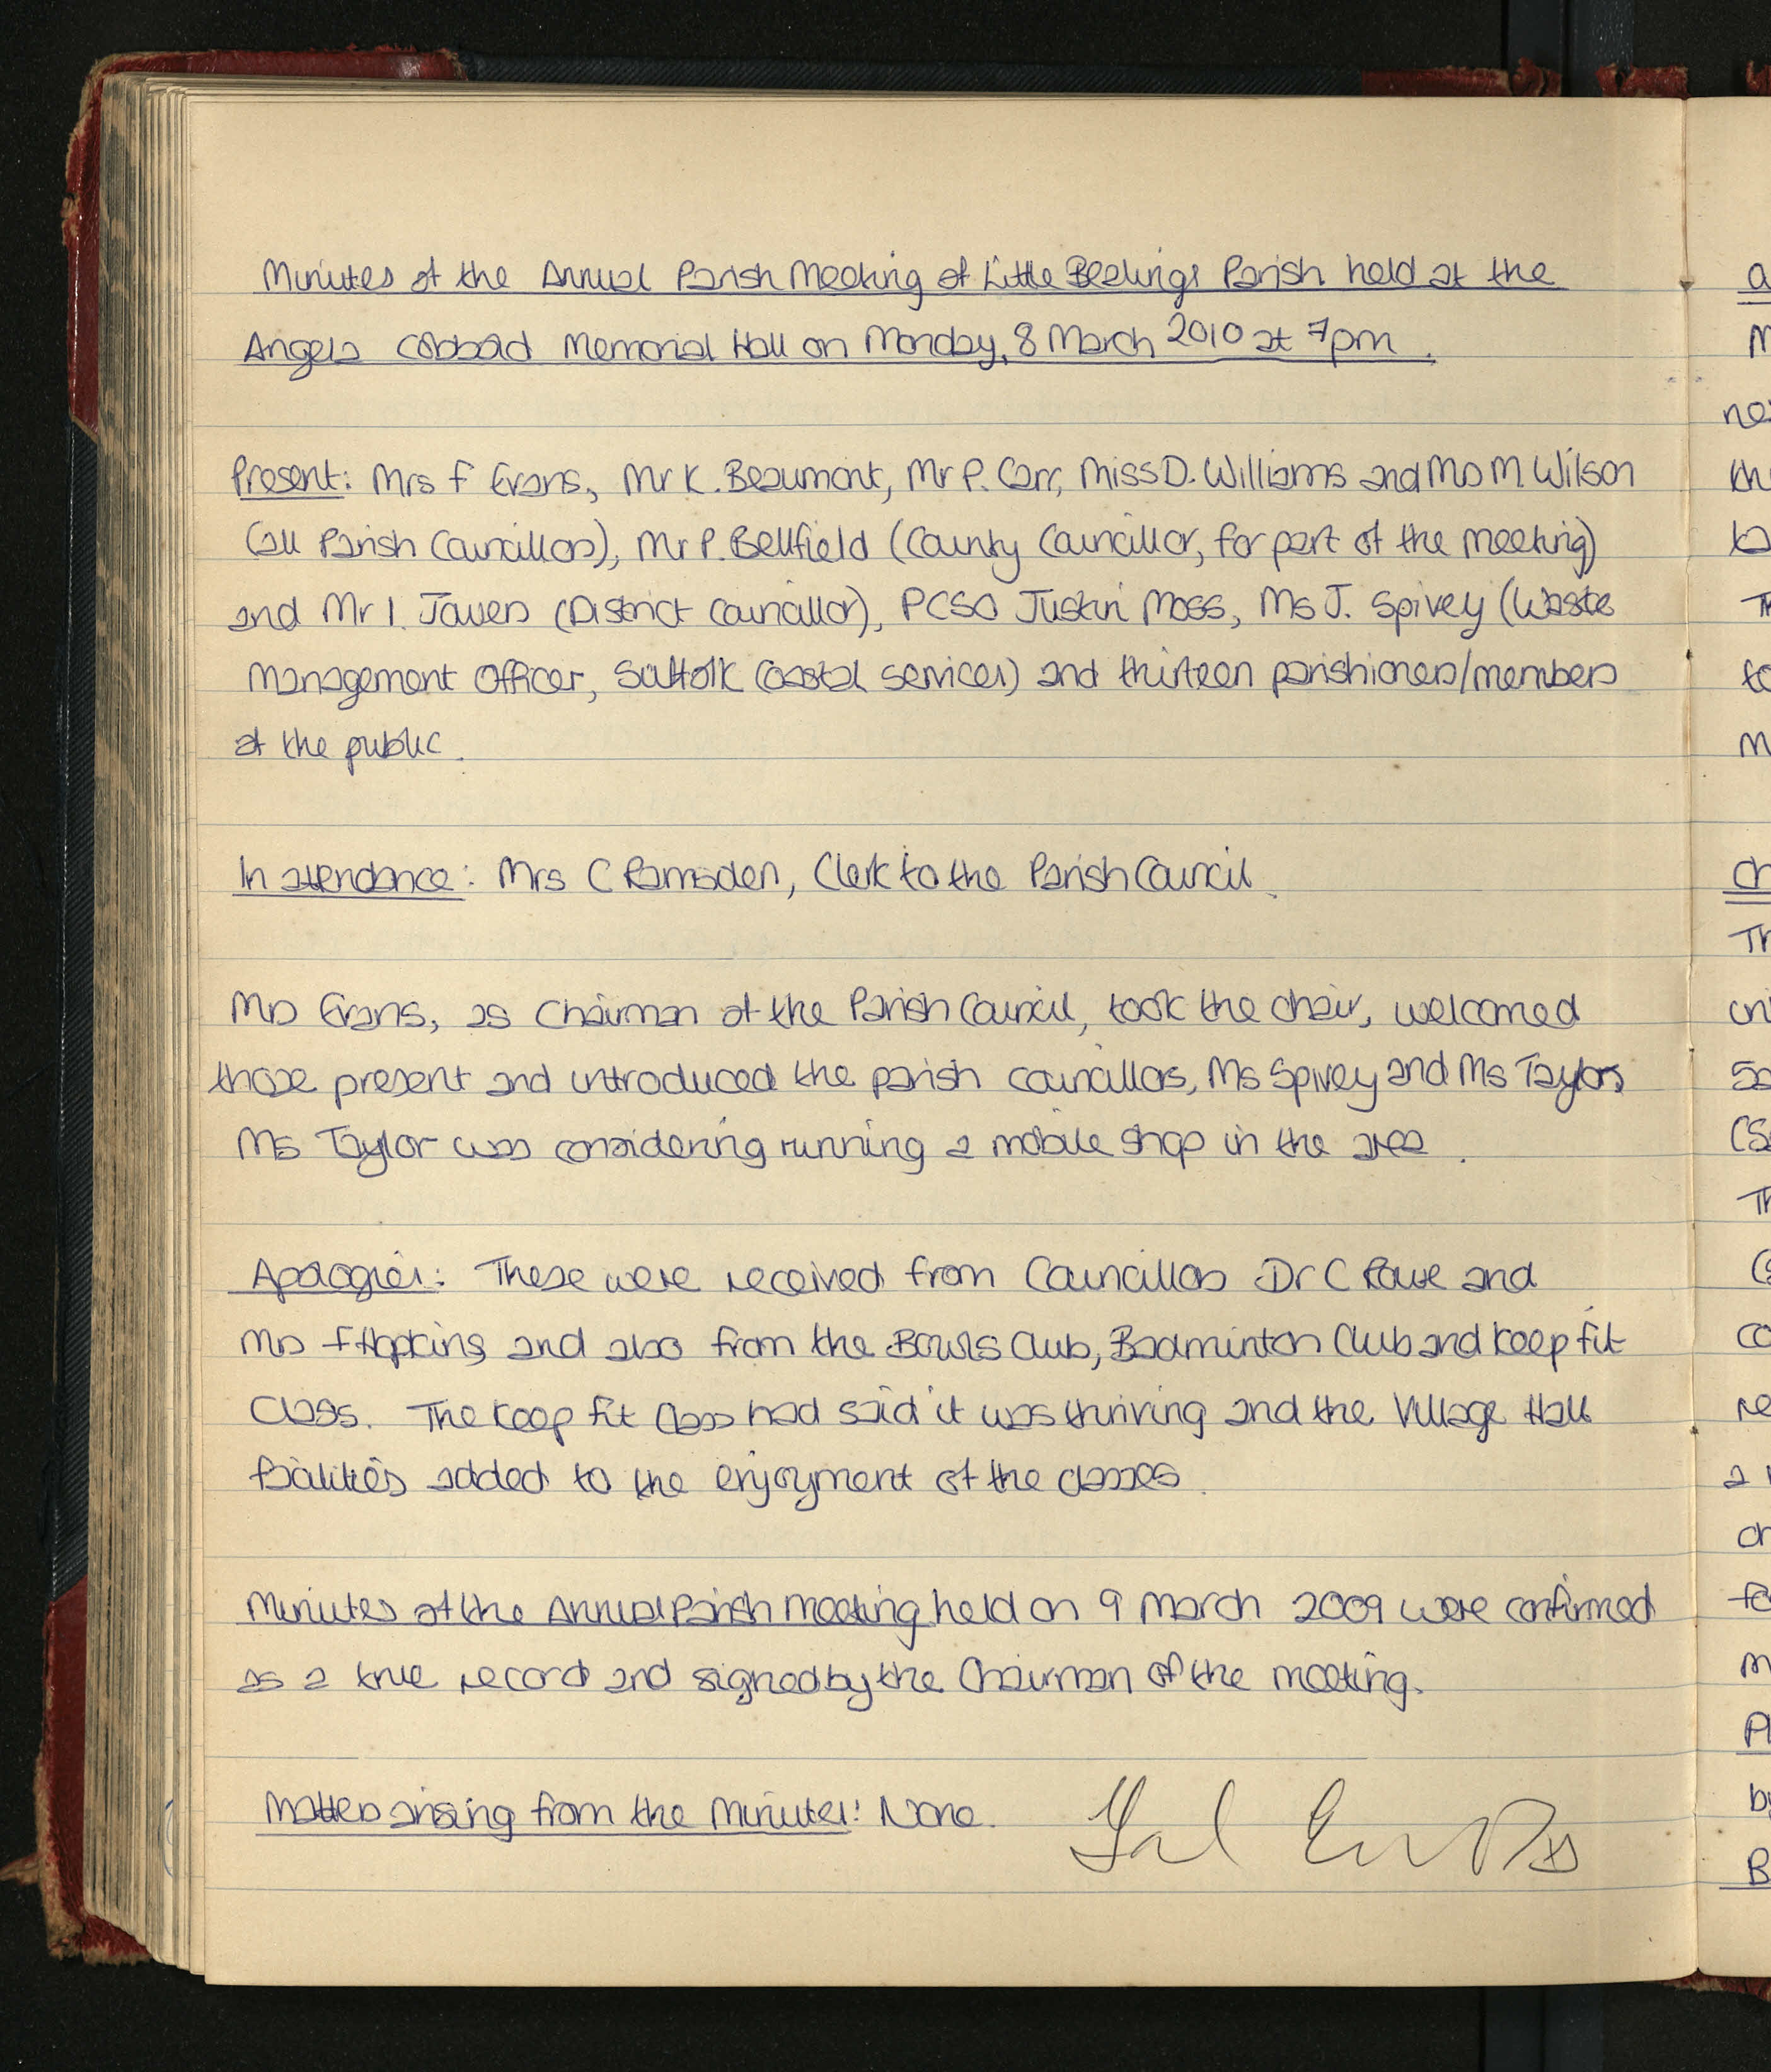 Minutes of the Annual Parish Meeting of Little Bealings Parish held at the
Angela Cobbold Memorial Hall on Monday, 8 March 2010 at 7pm.
Present: Mrs F Evans, Mr K. Beaumont, Mr P. Carr, Miss D. Williams and Mrs M. Wilson
(all Parish Councillors), Mr P. Bellfield (County Councillor, for part of the meeting)
and Mr I. Jowers (District Councillor), PCSO Justin Moss, Ms J. Spivey (Waste
Management Officer, Suffolk Coastal Services) and thirteen parishioners/members
of the public.
In attendance: Mrs C Ramsden, Clerk to the Parish Council.
Mrs Evans, as Chairman of the Parish Council, took the chair, welcomed
those present and introduced the parish councillors, Ms Spivey and Ms Taylor,
Ms Taylor was considering running a mobile shop in the area.
Apologies: These were received from Councillors Dr C Rowe and
Mrs F Hopkins and also from the Bowls Club, Badminton Club and Keep fit
Class. The Keep fit Class had said it was thriving and the Village Hall
facilities added to the enjoyment of the classes.
Minutes of the Annual Parish Meeting held on 9 March 2009 were confirmed
as a true record and signed by the Chairman of the meeting.
Matters arising from the Minutes: None.